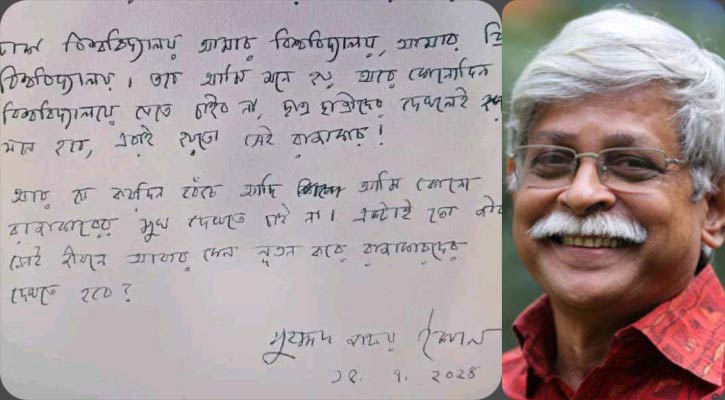 ঢাকা বিশ্ববিদ্যালয় আমার বিশ্ববিদ্যালয়, আমার প্রি
বিশ্ববিদ্যালয়। তবে আমি মনে হয় আর কোনোদিন
বিশ্ববিদ্যালয়ে যেতে চাইব না, ছাত্র ছাত্রীদের দেখলেই
মনে হবে, এরাই হয়তো সেই রাজাকার!
আর যে কয়দিন বেঁচে আছি আমি কোনো
রাজাকারের মুখ দেখতে চাই না। একটাই তো জীব
সেই জীবনে আবার কেন নূতন করে রাজাকারদের
দেখতে হবে?
মুহম্মদ জাফর ইকবাল
১৫. ৭. ২০২৪